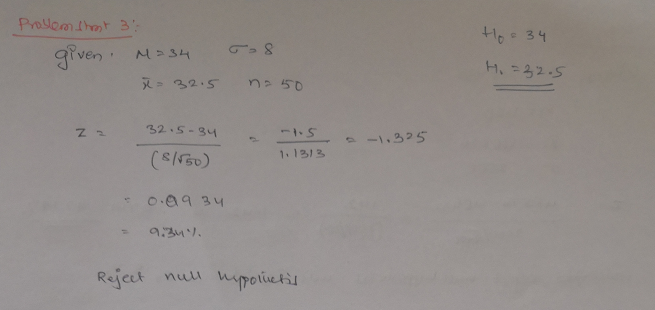 Problem Stmt 3:-
given. M=34 σ=8
x̄= 32.5 n= 50
H0 = 34
H1 = 32.5
Z = 32.5-34 / (8/√50) = -1.5 / 1.1313 = -1.325
= 0.0934
= 9.34%
Reject null hypothetis